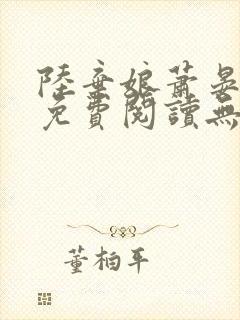 陸棄娘蕭晏
免費閱讀無
董柏年